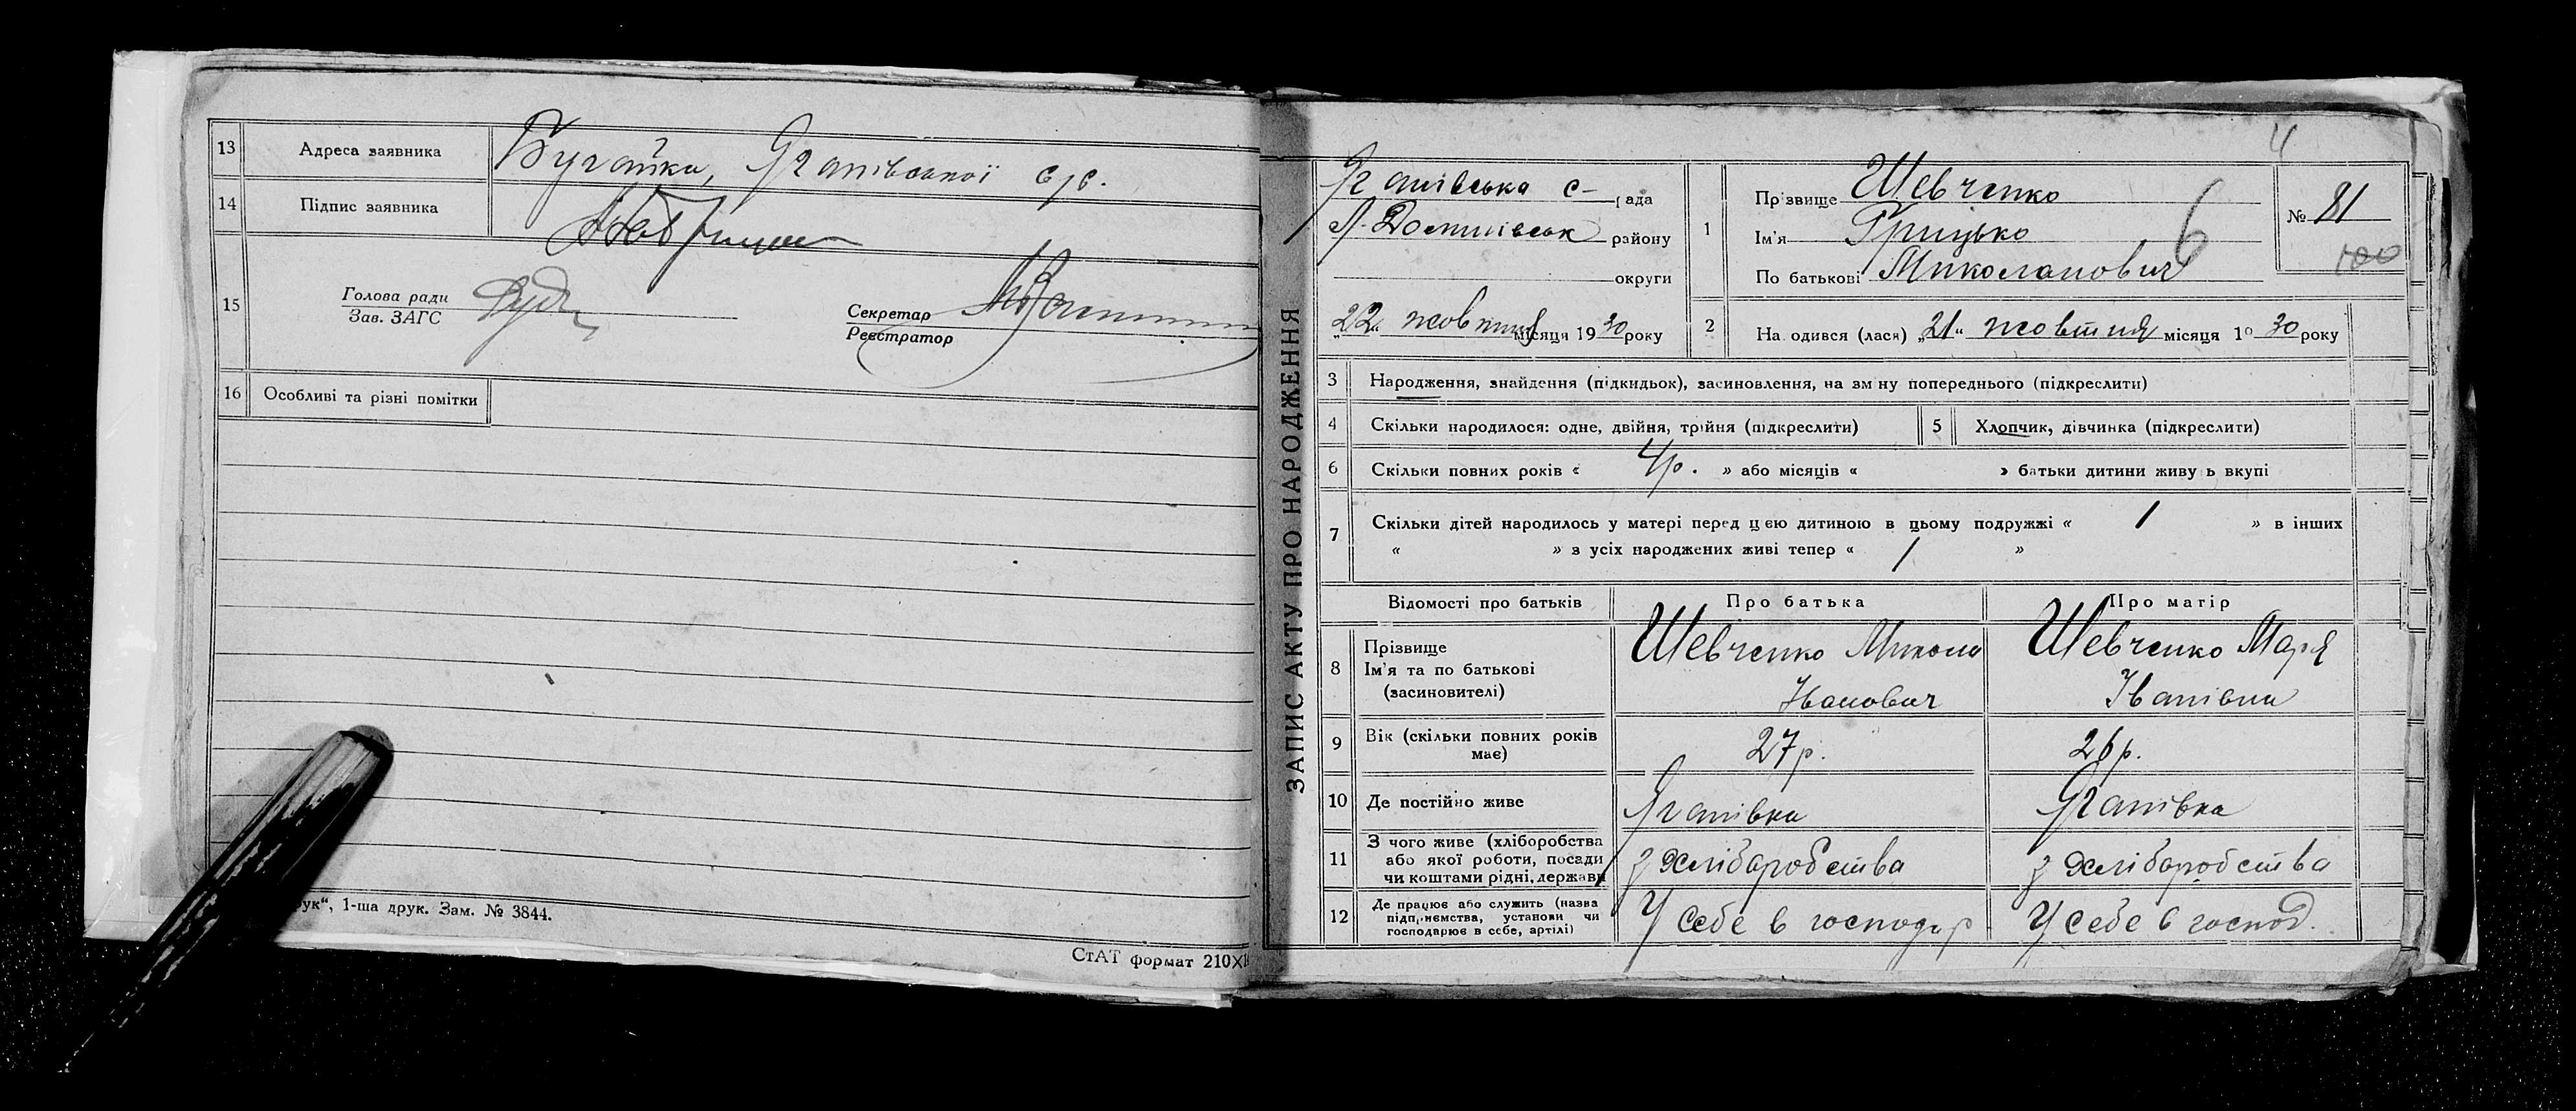 13 Адреса заявника Бугаївка, Яганівської с/с.
14 Підпис заявника
15 Голова ради
Зав. ЗАГС
Секретар
Реєстратор
16 Особливі та різні помітки
рук“, 1-ша друк. Зам. № 3844.
СтАТ формат 210X1
ЗАПИС АКТУ ПРО НАРОДЖЕННЯ
4
Яганівська с- рада
району
округи
„22„ жовтня місяця 1930 року
1 Прізвище Шевченко
Ім'я Грицько
По батькові Миколайович
6
№ 81
100
2 На одився (лася) „21“ жовтня місяця 1930 року
3 Народження, знайдення (підкидьок), засиновлення, на зм ну попереднього (підкреслити)
4 Скільки народилося: одне, двійня, трійня (підкреслити)
5 Хлопчик, дівчинка (підкреслити)
6 Скільки повних років « 4р. » або місяців « » батьки дитини живу ь вкупі
7 Скільки дітей народилось у матері перед цією дитиною в цьому подружжі « 1 » в інших
« » з усіх народжених живі тепер « 1 »
Відомості про батьків Про батька Про матір
8 Прізвище
Ім'я та по батькові
(засиновителі)
Шевченко Микола
Іванович
Шевченко Марія
Іванівна
9 Вік (скільки повних років
має)
27р. 26р.
10 Де постійно живе Яганівка Яганівка
11 З чого живе (хліборобства
або якої роботи, посади
чи коштами рідні, держави
з хліборобства з хліборобства
12 Де працює або служить (назва
підприємства, установи чи
господарює в себе, артілі)
У себе в господар У себе в господ.